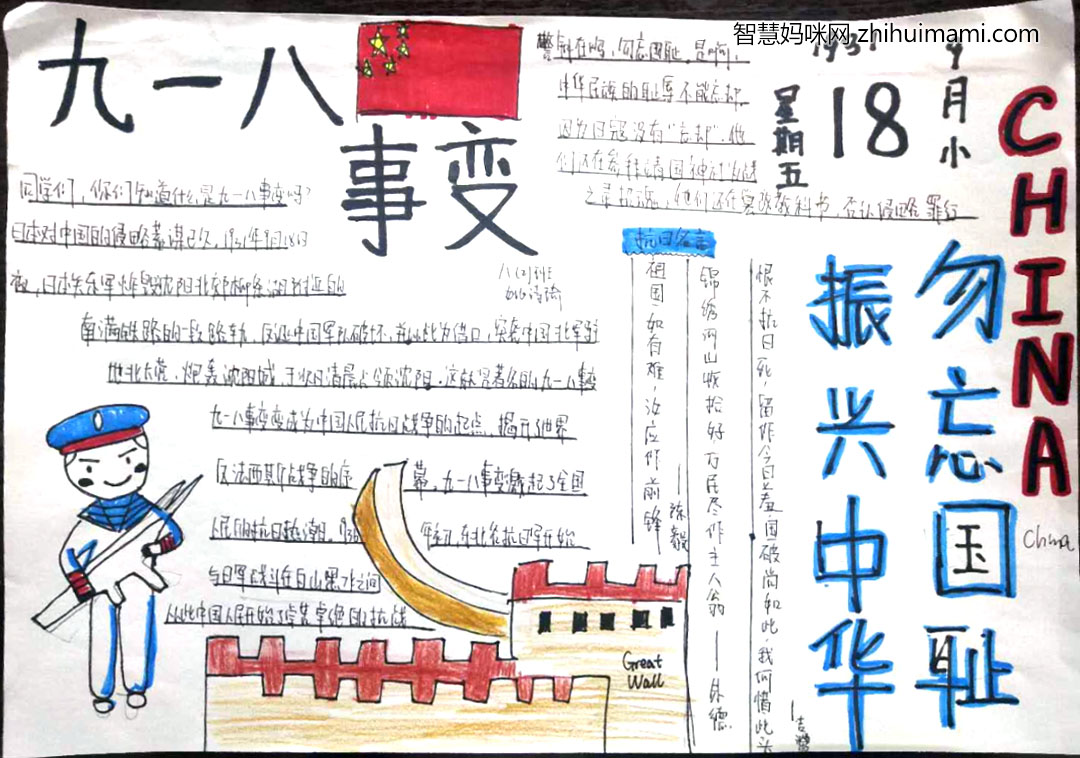 智慧妈咪网 zhihuimami.com
九一八
事变
警钟在鸣,勿忘国耻,是啊,
中华民族的耻辱不能忘却,
因为日寇没有"忘却",他
们还在参拜靖国神社为战
之寻招魂,他们还在篡改教科书,否认侵略罪行
1931
9月小
18
星期五
CHINA
同学们,你们知道什么是九一八事变吗?
日本对中国的侵略蓄谋已久,1931年9月18日
夜,日本关东军炸毁沈阳北郊柳条湖附近的
南满铁路的一段路轨,反诬中国军队破坏,并以此为借口,突袭中国北军驻
地北大营,炮轰沈阳城,于次日清晨占领沈阳,这就是著名的九一八事变
九一八事变变成为中国人民抗日战争的起点,揭开了世界
反法西斯战争的序幕,九一八事变激起了全国
人民的抗日热潮,
年初,东北各抗日军开始
与日军战斗在白山黑水之间
从此中国人民开始了卓绝的抗战
八(2)班
抗日名言
祖国如有难,汝应作前锋
——陈毅
锦绣河山收拾好,万民尽作主人翁
——朱德
恨不抗日死,留作今日羞,国破尚如此,我何惜此头
——吉鸿
勿忘国耻
振兴中华
China
Great
Wall